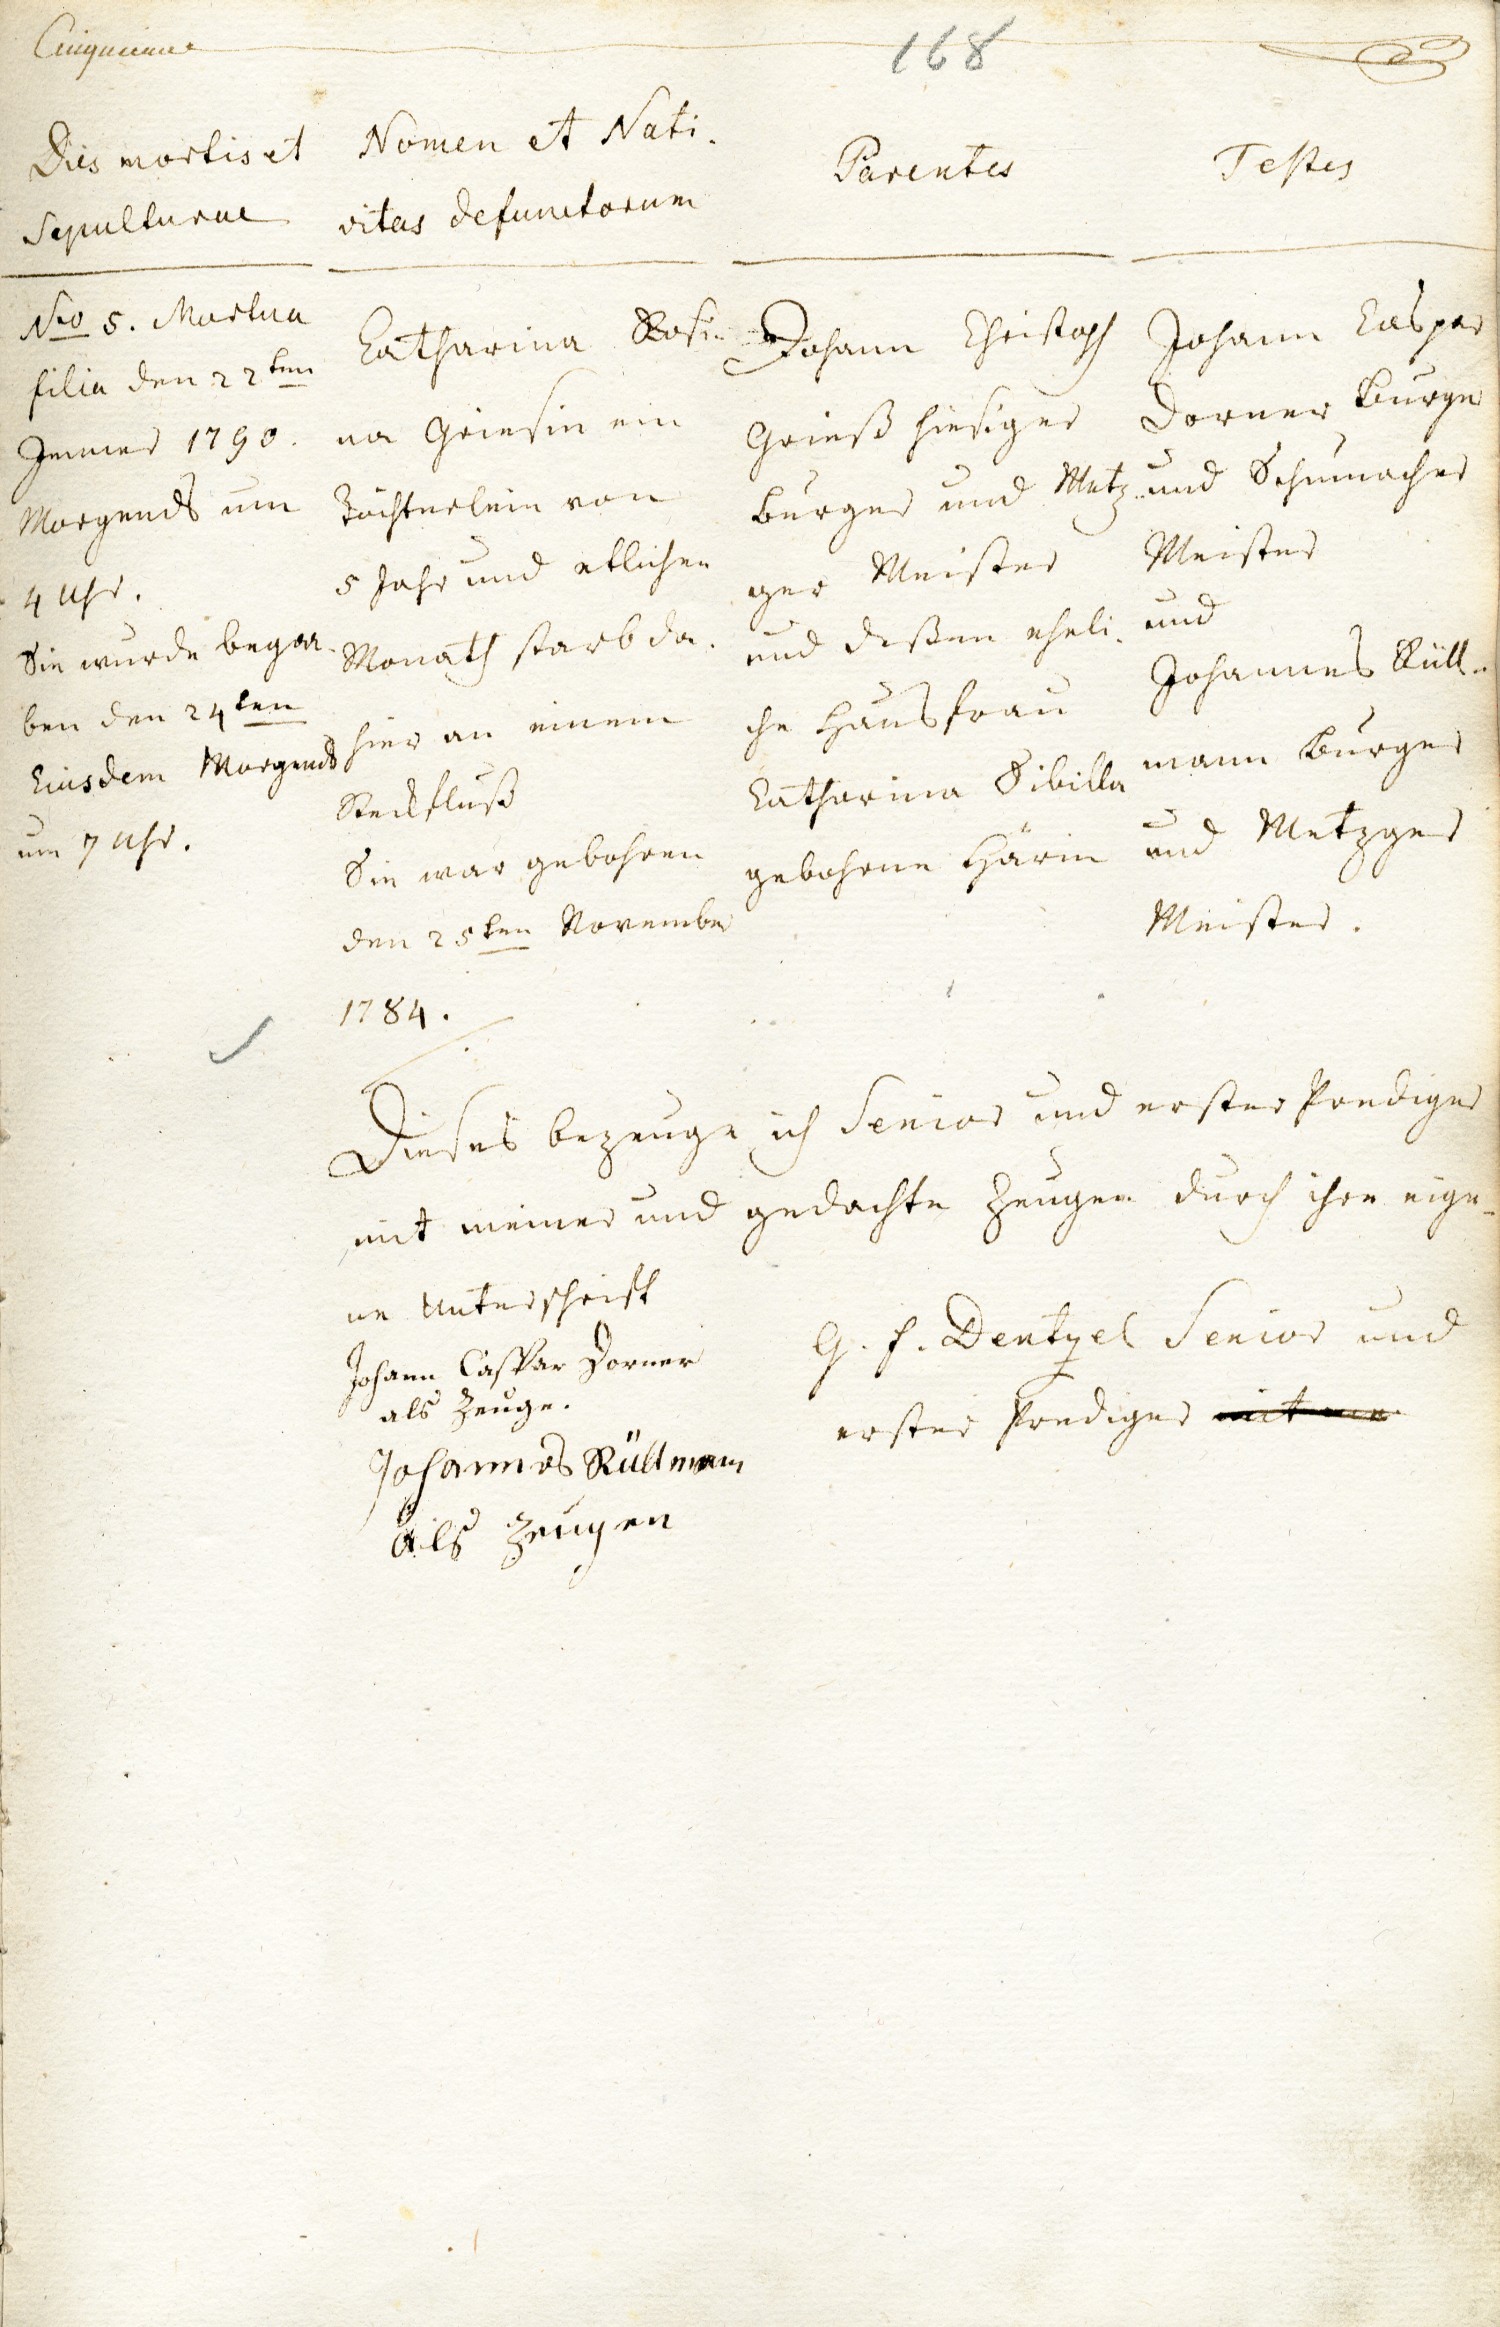 Cinquieme
168
Dies mortis et
Sepulturae
Nomen et Nati-
vitas defunctorum
Parentes
Testes
Nro 5. Mortua
filia den 22ten
Jenner 1790.
Morgends um
4 Uhr.
Sie wurde begra-
ben den 24ten
Eiusdem Morgends
um 7 Uhr.
Catharina Rosi-
na Griesin ein
Töchterlein von
5 Jahr und etlichen
Monath starb da-
hier an einem
Steckfluß
Sie war gebohren
den 25ten November
1784.
Johann Christoph
Grieß hiesiger
Burger und Metz-
ger Meister
und deßen eheli-
che Hausfrau
Catharina Sibilla
gebohrne Härin
Johann Caspar
Dorner Burger
und Schumacher
Meister
und
Johannes Rüll-
mann Burger
und Metzger
Meister.
Dieses bezeuge ich Senior und erster Prediger
mit meiner und gedachte Zeugen durch ihre eige-
ne Unterschrift
Johann Casspar Dorner
als Zeuge.
Johannes Rüllmann
als Zeugen
G. F. Dentzel Senior und
erster Prediger